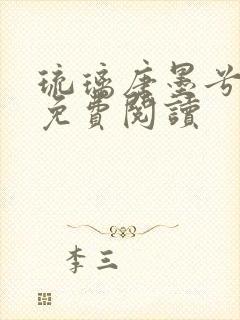 琉璃唐墨兮
免費閱讀
李三